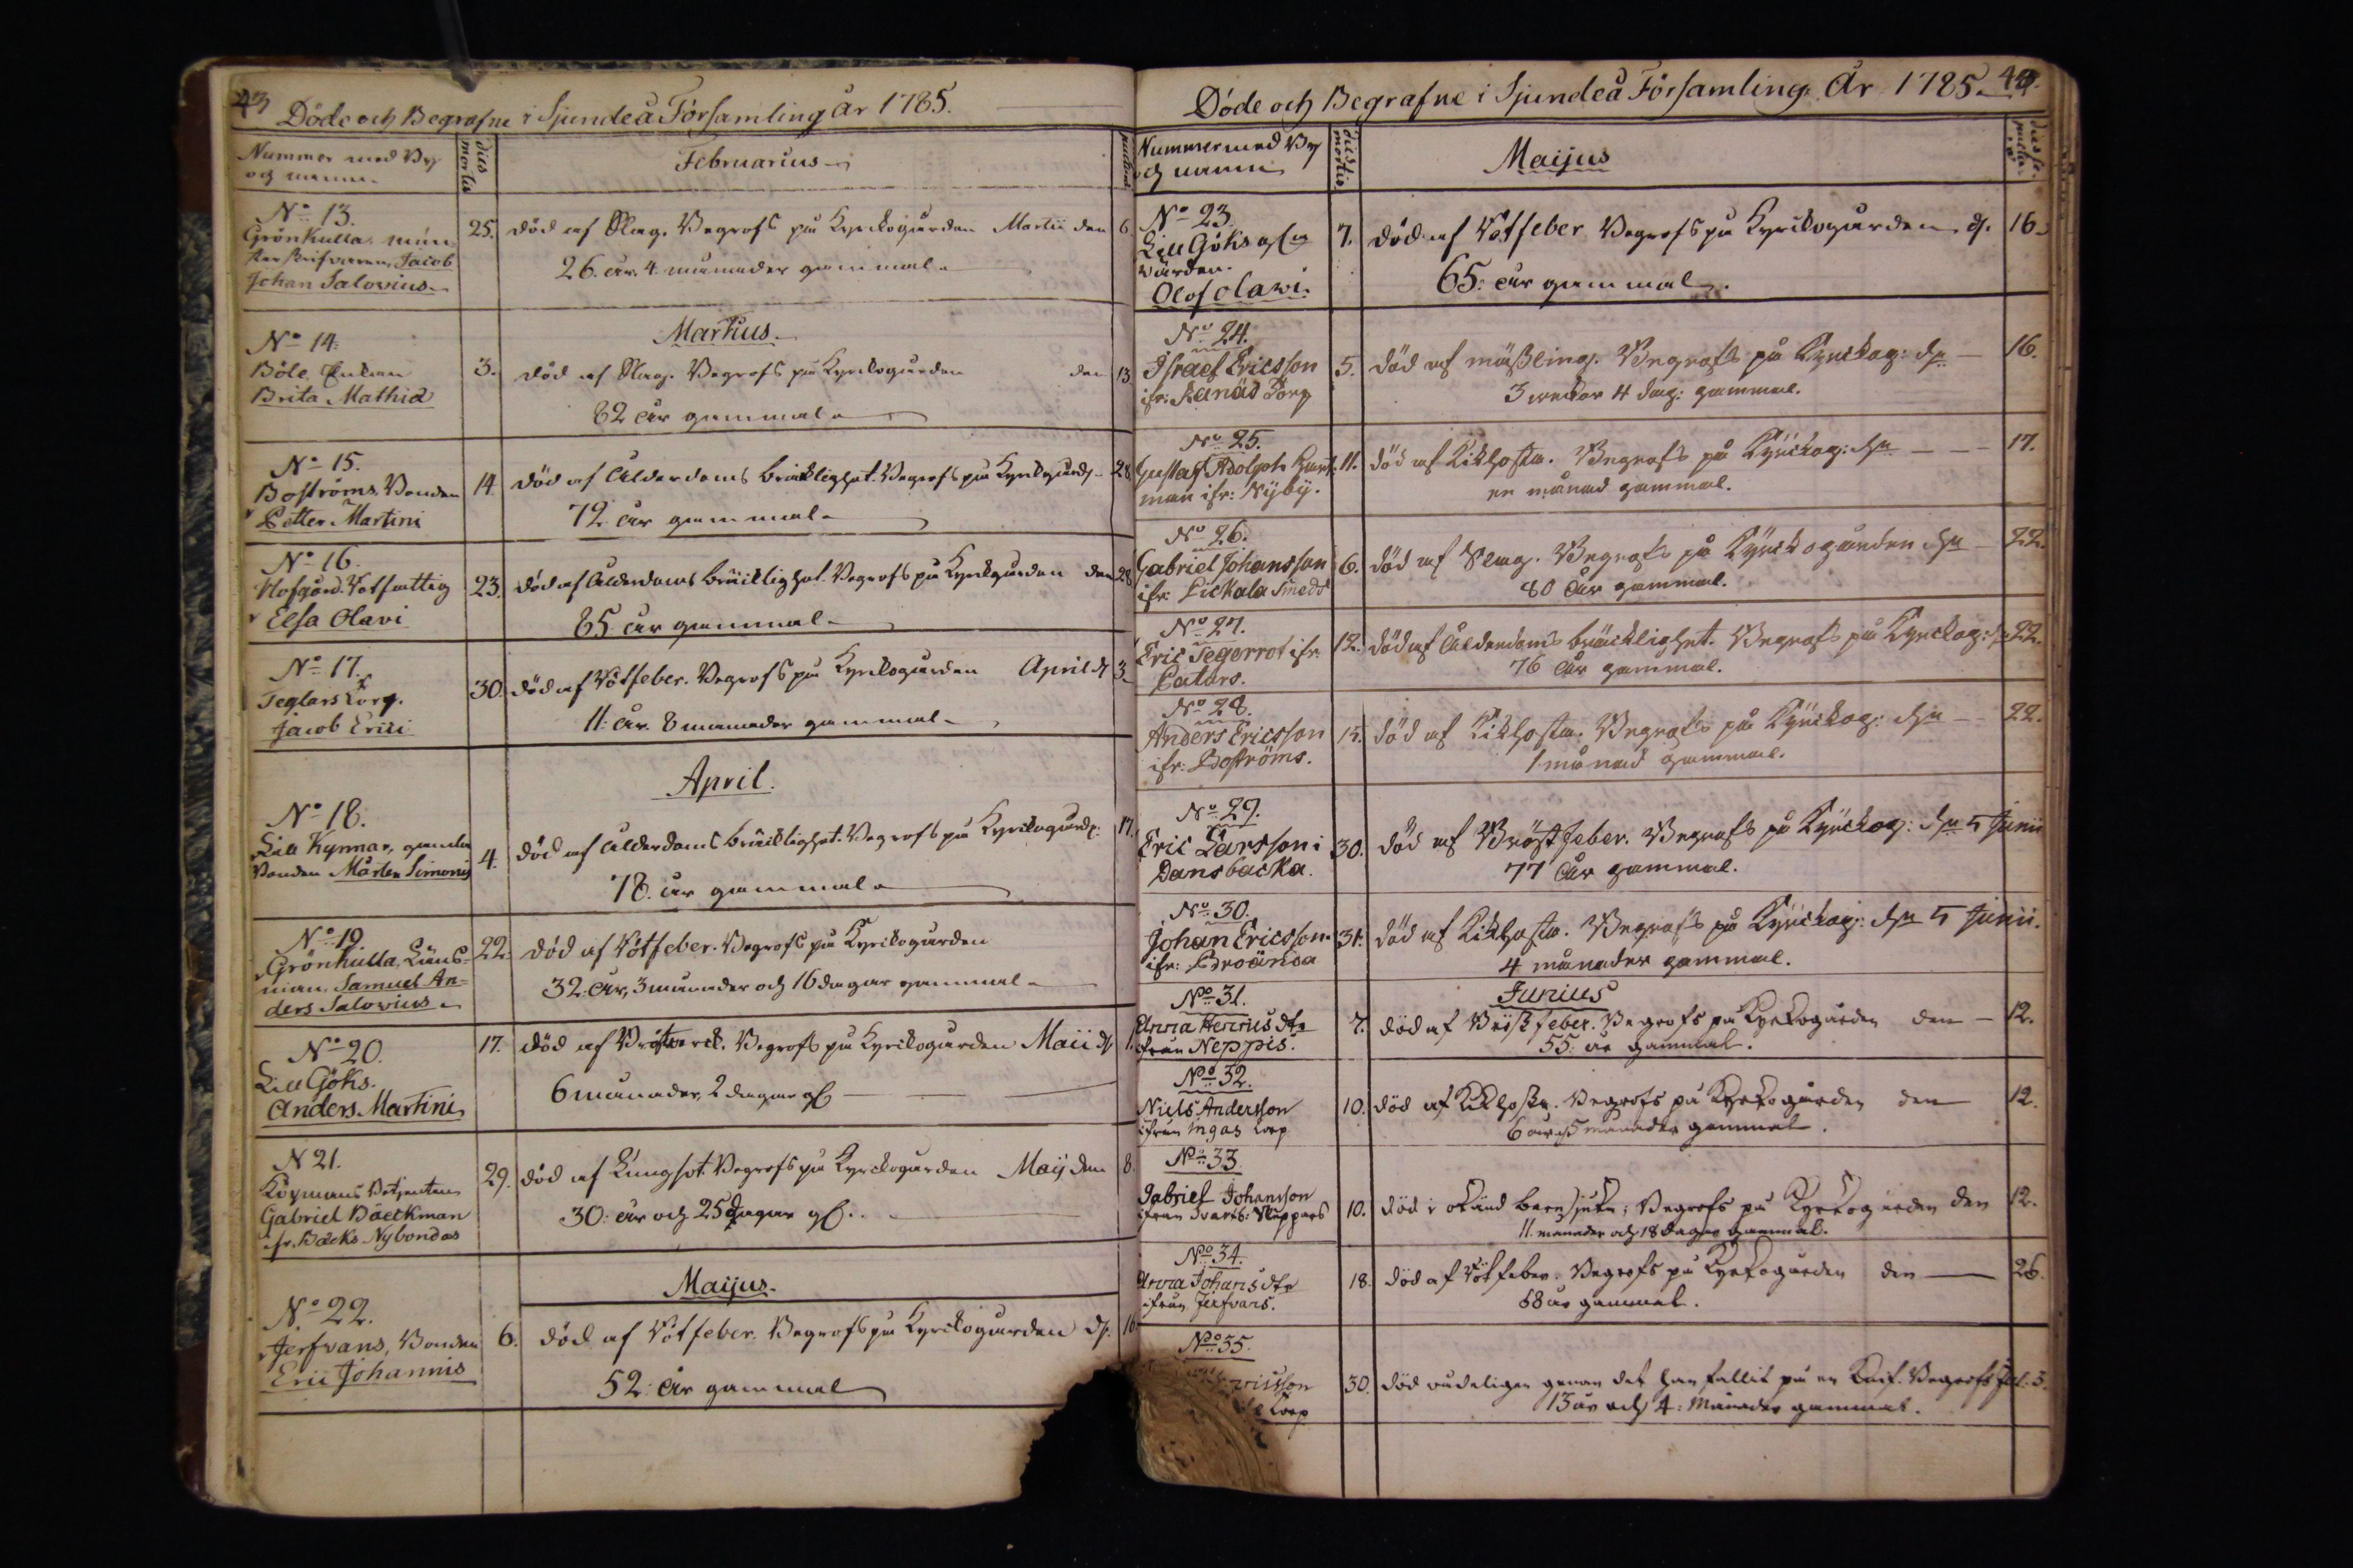 43
Döde och Begrafne i Sjundeå Församling år 1785.
Nummer med By
och namn.
dies mortis
Februarius
No 13.
Grönkulla, mön-
sterskrifvaren Jacob
Johan Salovius
25.
död af Slag. Begrofs på Kyrkogården Martii den
6
26. år. 4 månader gammal
Martius
No 14.
Böle Enkan
Brita Mathiæ
3.
död af Slag. Begrofs på Kyrkogården den
13
82 år gammal
No 15.
Boströms Bonden
Petter Martini
14.
död af Ålderdoms bräcklighet. Begrofs på Kyrkogård
28
72 år gammal
No 16.
Hofgård. Rotfattig
Elsa Olavi
23.
död af Ålderdoms bräcklighet. Begrofs på Kyrkogården den
28
85 år gammal
No 17.
Teglars Torp.
Jacob Erici
30.
död af Rötfeber. Begrofs på Kyrkogården April d
3
11. år. 8 månader gammal
April.
No 18.
Lill Kyrmar, gamla
Bonden Mårten Simonis
4.
död af Ålderdoms bräcklighet. Begrofs på Kyrkogård.
17.
78. år gammal
No 19
Grönkulla, Läns-
man, Samuel An-
ders Salovius
22.
död af Rötfeber. Begrofs på Kyrkogården
32. år, 3 månader och 16 dagar gammal
No 20.
Lill Göks.
Anders Martini
17.
död af Bröstwerck. Begrofs på Kyrkogården Maii d
1.
6 månader, 2 dagar gl
N 21.
Gabriel Bäckman
ifr. Bäcks Nybondas
29.
död af Lungsot. Begrofs på Kyrckogården Maij den
8.
30. år och 25 dagar gl.
Maijus.
No 22.
Jerfvans, Bonden
Eric Johannis
6.
död af Rötfeber. Begrofs på Kyrckogården d.
16
52. år gammal
Döde och Begrafne i Sjundeå Församling År 1785.
44.
Nummer med By
och namn
dies mortis
Maijus
No 23.
Lill Göks
värden.
Olof Olawi.
7.
död af Rötfeber Begrofs på Kyrckogården d.
16.
65. år gammal.
No 24.
Israel Ericsson
ifr: Kanäs Torp
5.
död af mäßling. Begrofs på Kyrckog: den
16.
3 weckor 4 dag: gammal.
No 25.
Gustaf Adolph Hart-
man ifr: Nyby.
11.
död af Kikhosta. Begrofs på Kyrckog: den
17.
en månad gammal.
No 26.
Gabriel Johansson
ifr: Pickala Smeds
6.
död af Slag. Begrofs på Kyrckogården den
22.
80 år gammal.
No 27.
Eric Tegerrot ifr
Patars.
12.
död af Ålderdoms bräcklighet. Begrofs på Kyrckog:
22.
76 år gammal.
No 28.
Anders Ericsson
ifr: Boströms.
15.
död af Kikhosta. Begrofs på Kyrckog: den
22.
1 månad gammal.
No 29.
Eric Larsson i
Dansbacka.
30.
död af Bröstfeber. Begrofs på Kyrckog: den 5 Junii
77 år gammal.
No 30.
Johan Ericsson
ifr: Broända
31.
död af Kikhosta. Begrofs på Kyrckog: den 5 Junii.
4 månader gammal.
Junius
No 31.
Anna Henricsdtr
ifrån Neppis.
7.
död af Bröstfeber. Begrofs på Kyrkogården den
12.
55. år gammal.
No 32.
Niels Andersson
ifrån Ingas torp
10.
död af Kikhosta. Begrofs på Kyrkogården den
12.
6 år, 5 månader gammal.
No 33
Gabriel Johansson
10.
död i okänd barnsjuka; Begrofs på Kyrkogården den
12.
11. månader och 18 dagar gammal.
No 34.
Anna Johansdtr
ifrån Jerfvans.
18.
död af Rötfeber. Begrofs på Kyrkogården den
26.
58 år gammal.
No 35.
Torp
30.
död genom det han fallit på en Knif. Begrofs Jul. 3.
13 år och 4. Månader gammal.